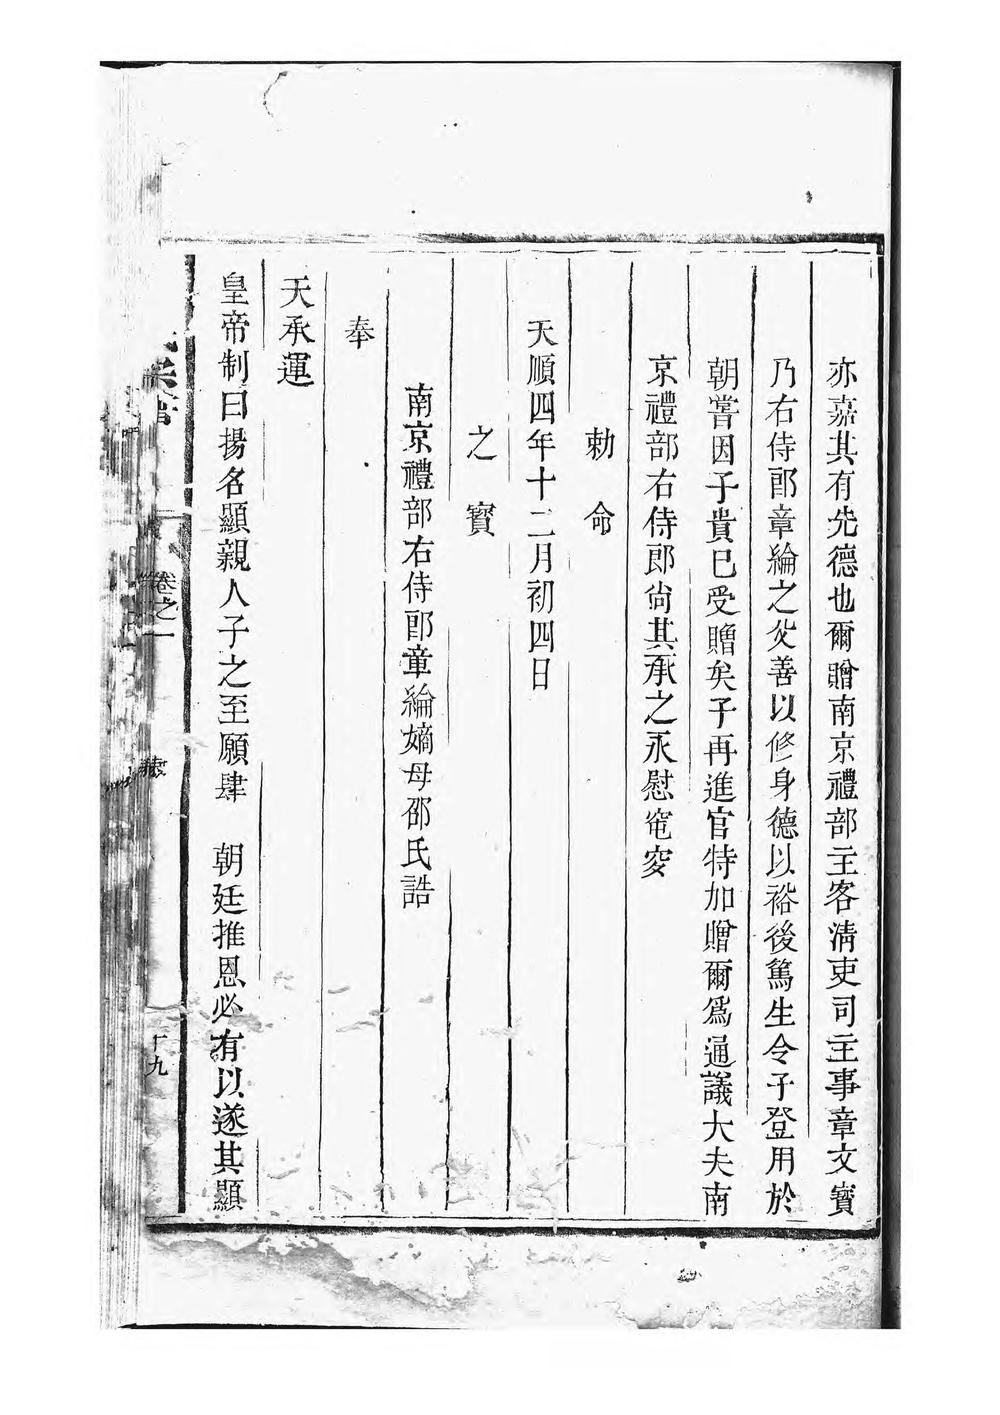 亦嘉其有先德也爾贈南京禮部主客清吏司主事章文寶
乃右侍郎章綸之父善以修身德以裕後篤生令子登用於
朝嘗因子貴已受贈矣子再進官特加贈爾爲通議大夫南
京禮部右侍郎尙其承之永慰窀穸
勅命
天順四年十二月初四日
之寶
南京禮部右侍郎章綸嫡母邵氏誥
奉
天承運
皇帝制曰揚名顯親人子之至願肆 朝廷推恩必有以遂其顯
卷之一
十九